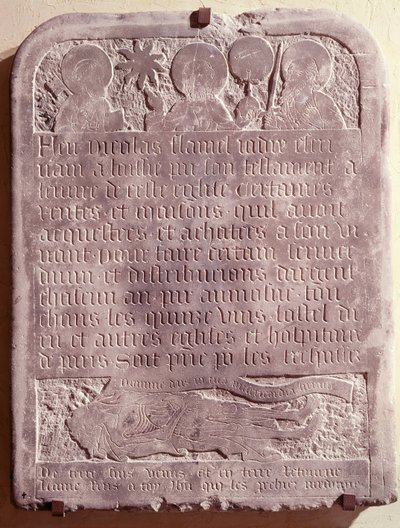 Feu nicolas flamel jadiz escri
uain a laissie par son testament a
leuure de ceste eglise certaines
rentes et maisons quil auoit
acquestees et achatees a son vi
uant pour faire certain seruice
diuin et distribucions dargent
chascun an par aumosne tou
chans les quinze vins lostel di
eu et autres eglises et hospitaux
de paris Soit prie po les trespasses
Domine deus in tua misericordia speraui
De terre suis venus et en terre retourne
Lame rens a toy Jhu qui les pechiez pardonne